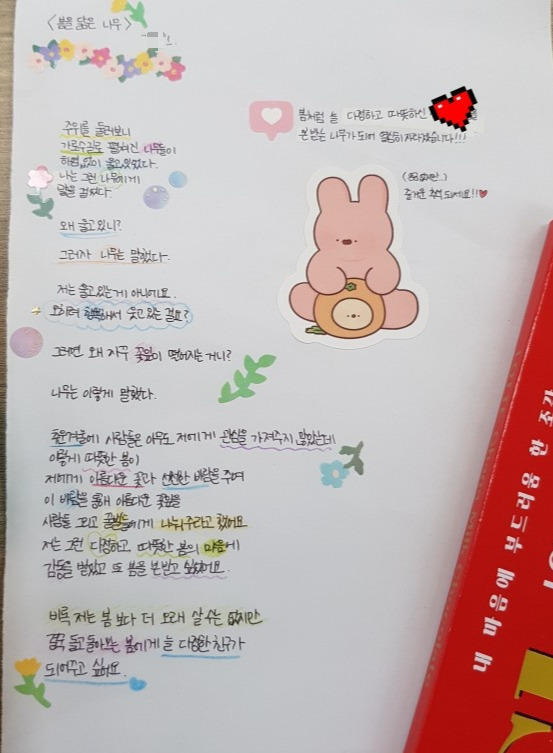 <봄을 닮은 나무>
주위를 둘러보니
가로수길로 펼쳐진 나무들이
하염없이 울고있었다.
나는 그런 나무에게
말을 걸었다.
왜 울고있니?
그러자 나무는 말했다.
저는 울고있는게 아니에요.
오히려 행복해서 웃고있는 걸요?
그러면 왜 자꾸 꽃잎이 떨어지는 거니?
나무는 이렇게 말했다.
추운겨울에 사람들은 아무도 저에게 관심을 가져주지 않았는데
이렇게 따뜻한 봄이
저에게 아름다운 꽃과 선선한 바람을 주며
이 바람을 통해 아름다운 꽃잎을
사람들 그리고 꿀벌들에게 나눠주라고 했어요
저는 그런 다정하고, 따뜻한 봄의 마음에
감동을 받았고 또 봄을 본받고 싶었어요.
비록 저는 봄 보다 더 오래 살 수는 없지만
결국 돌고돌아오는 봄에게 늘 다정한 친구가
되어주고 싶어요.
봄처럼 늘 다정하고 따뜻하신
본받는 나무가 되어 열심히 자라겠습니다!!!
즐거운 추석 되세요!!
내 마음에 부드러움 한 조각